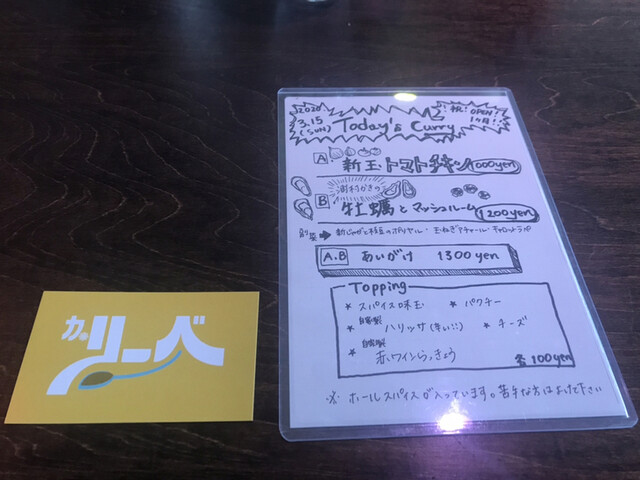 カリーベ
2020
3.15
(SUN)
Today's Curry
祝! OPEN!
1ヶ月!
A 新玉トマトチキン 1000yen
B 牡蠣とマッシュルーム 1200yen
副菜→ 新じゃがと枝豆のポリヤル・玉ねぎアチャール・キャロットラペ
A.B あいがけ 1300yen
Topping
★ スパイス味玉 ★ パクチー
★ 自家製 ハリッサ(辛い!!) ★ チーズ
★ 自家製 赤ワインらっきょう 各100yen
※ ホールスパイスが入っています。苦手な方はよけて下さい